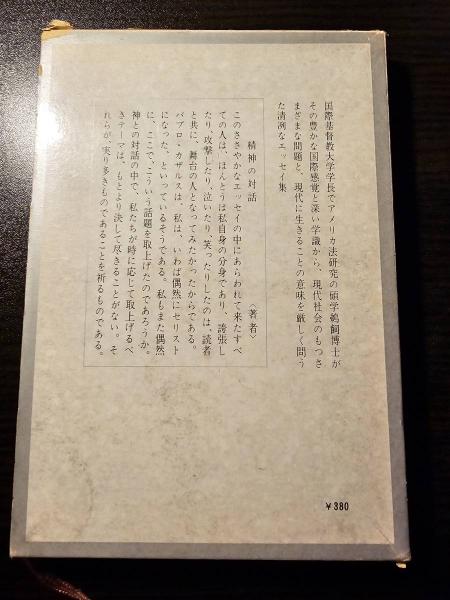 国際基督教大学学長でアメリカ法研究の碩学鵜飼博士が
その豊かな国際感覚と深い学識から、現代社会のもつさ
まざまな問題と、現代に生きることの意味を厳しく問う
た清冽なエッセイ集
精神の対話
〈著者〉
このささやかなエッセイの中にあらわれて来たすべ
ての人は、ほんとうは私自身の分身であり、誇張し
たり、攻撃したり、泣いたり、笑ったりしたのは、読者
と共に、舞台の人となってみたかったからである。
パブロ・カザルスは、私は、いわば偶然にセリスト
になった、といっているそうである。私もまた偶然
に、ここで、こういう話題を取上げたのであろうか。
神との対話の中で、私たちが時に応じて取上げるべ
きテーマは、もとより決して尽きることがない。そ
れらが、実り多きものであることを祈るものである。
￥380